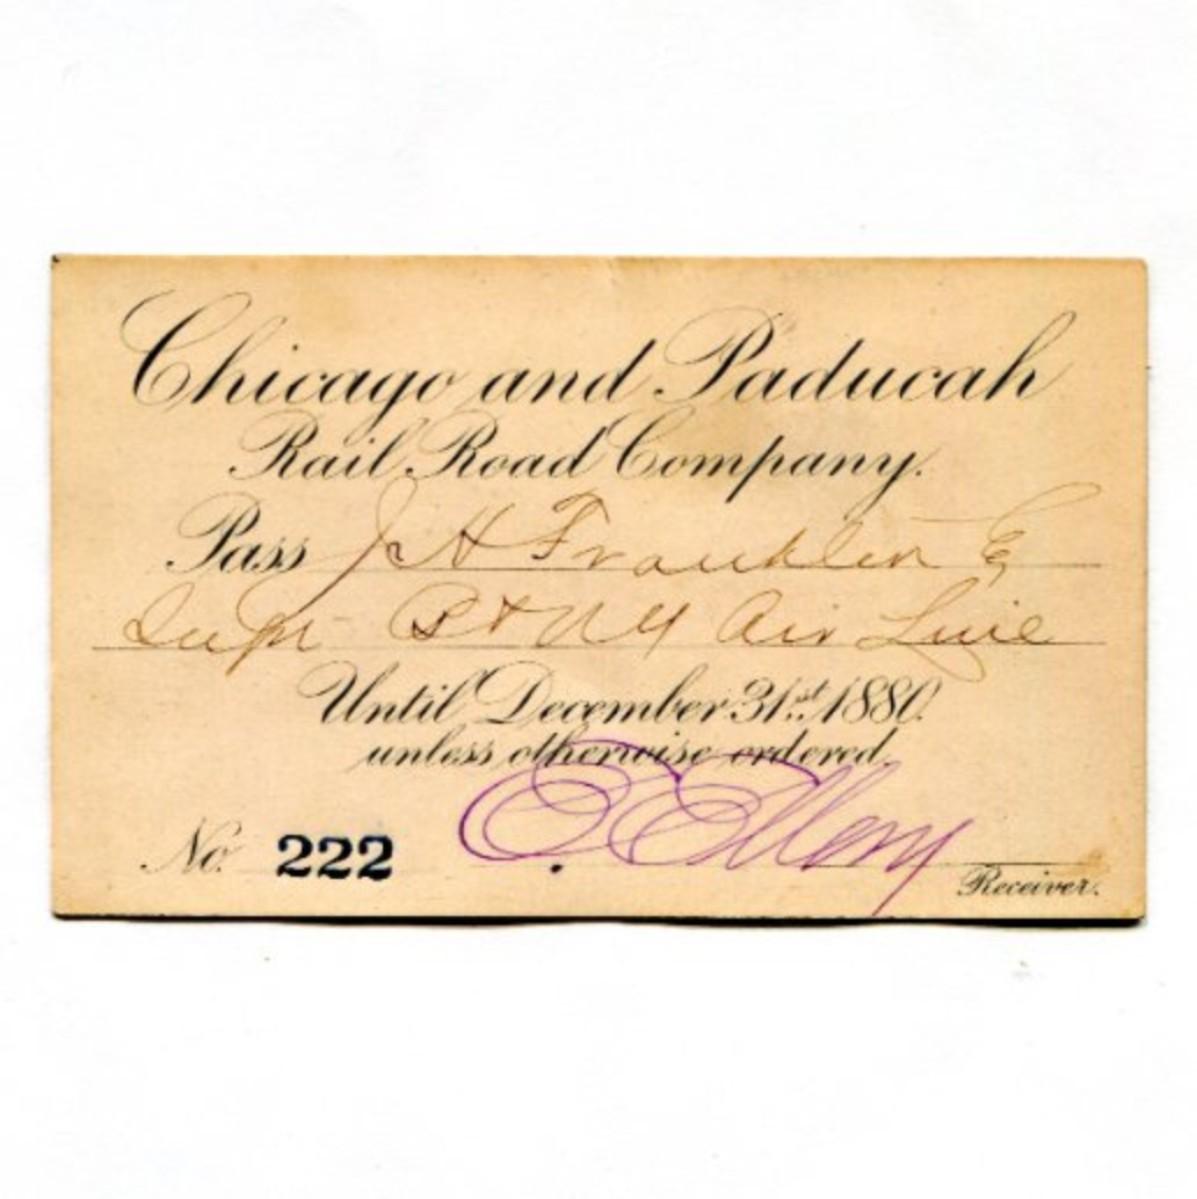 Chicago and Paducah
Rail Road Company.
Pass J H Franklin E
Supt B & N Y Air Line
Until December 31st. 1880.
unless otherwise ordered.
No. 222 E Ellery
Receiver.